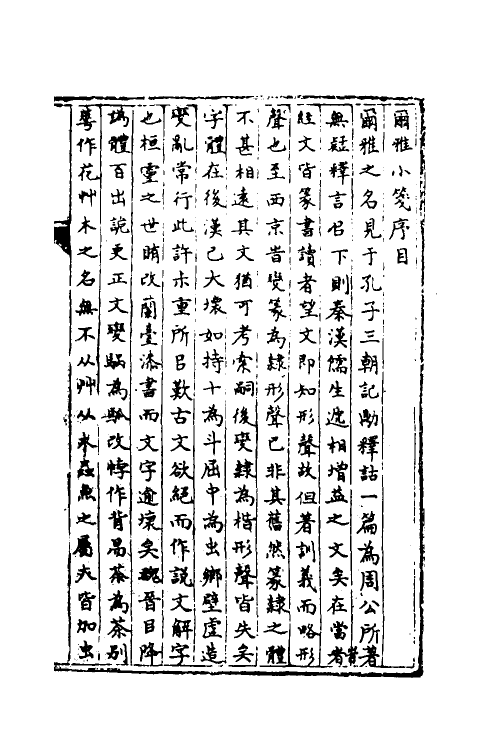 爾雅小箋序目
爾雅之名見于孔子三朝記勘釋詁一篇為周公所著
無疑釋言㠯下則秦漢儒生遞相增益之文矣在當者
經文皆篆書讀者望文即知形聲故但著訓義而略形
聲也至西京旹變篆為隸形聲已非其舊然篆隸之體
不甚相遠其文猶可考索嗣後變隸為楷形聲皆失矣
字體在後漢已大壞如持十為斗屈中為虫鄉壁虛造
變亂常行此許尗重所㠯歎古文欲絕而作說文解字
也桓靈之世賄改蘭臺漆書而文字逾壞矣魏晉目降
譌體百出說更正文變騧為騙改悖作背昂荼為茶別
蕚作花艸木之名無不从艸从木蟲魚之屬夫皆加虫